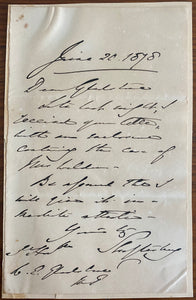 June 20. 1878
Dear Gladstone
Late last night, I
received your letter
with an enclosure
the case of
Be assured that I
will give it im-
mediate attention
Yours
Shaftesbury
W. E. Gladstone
MP